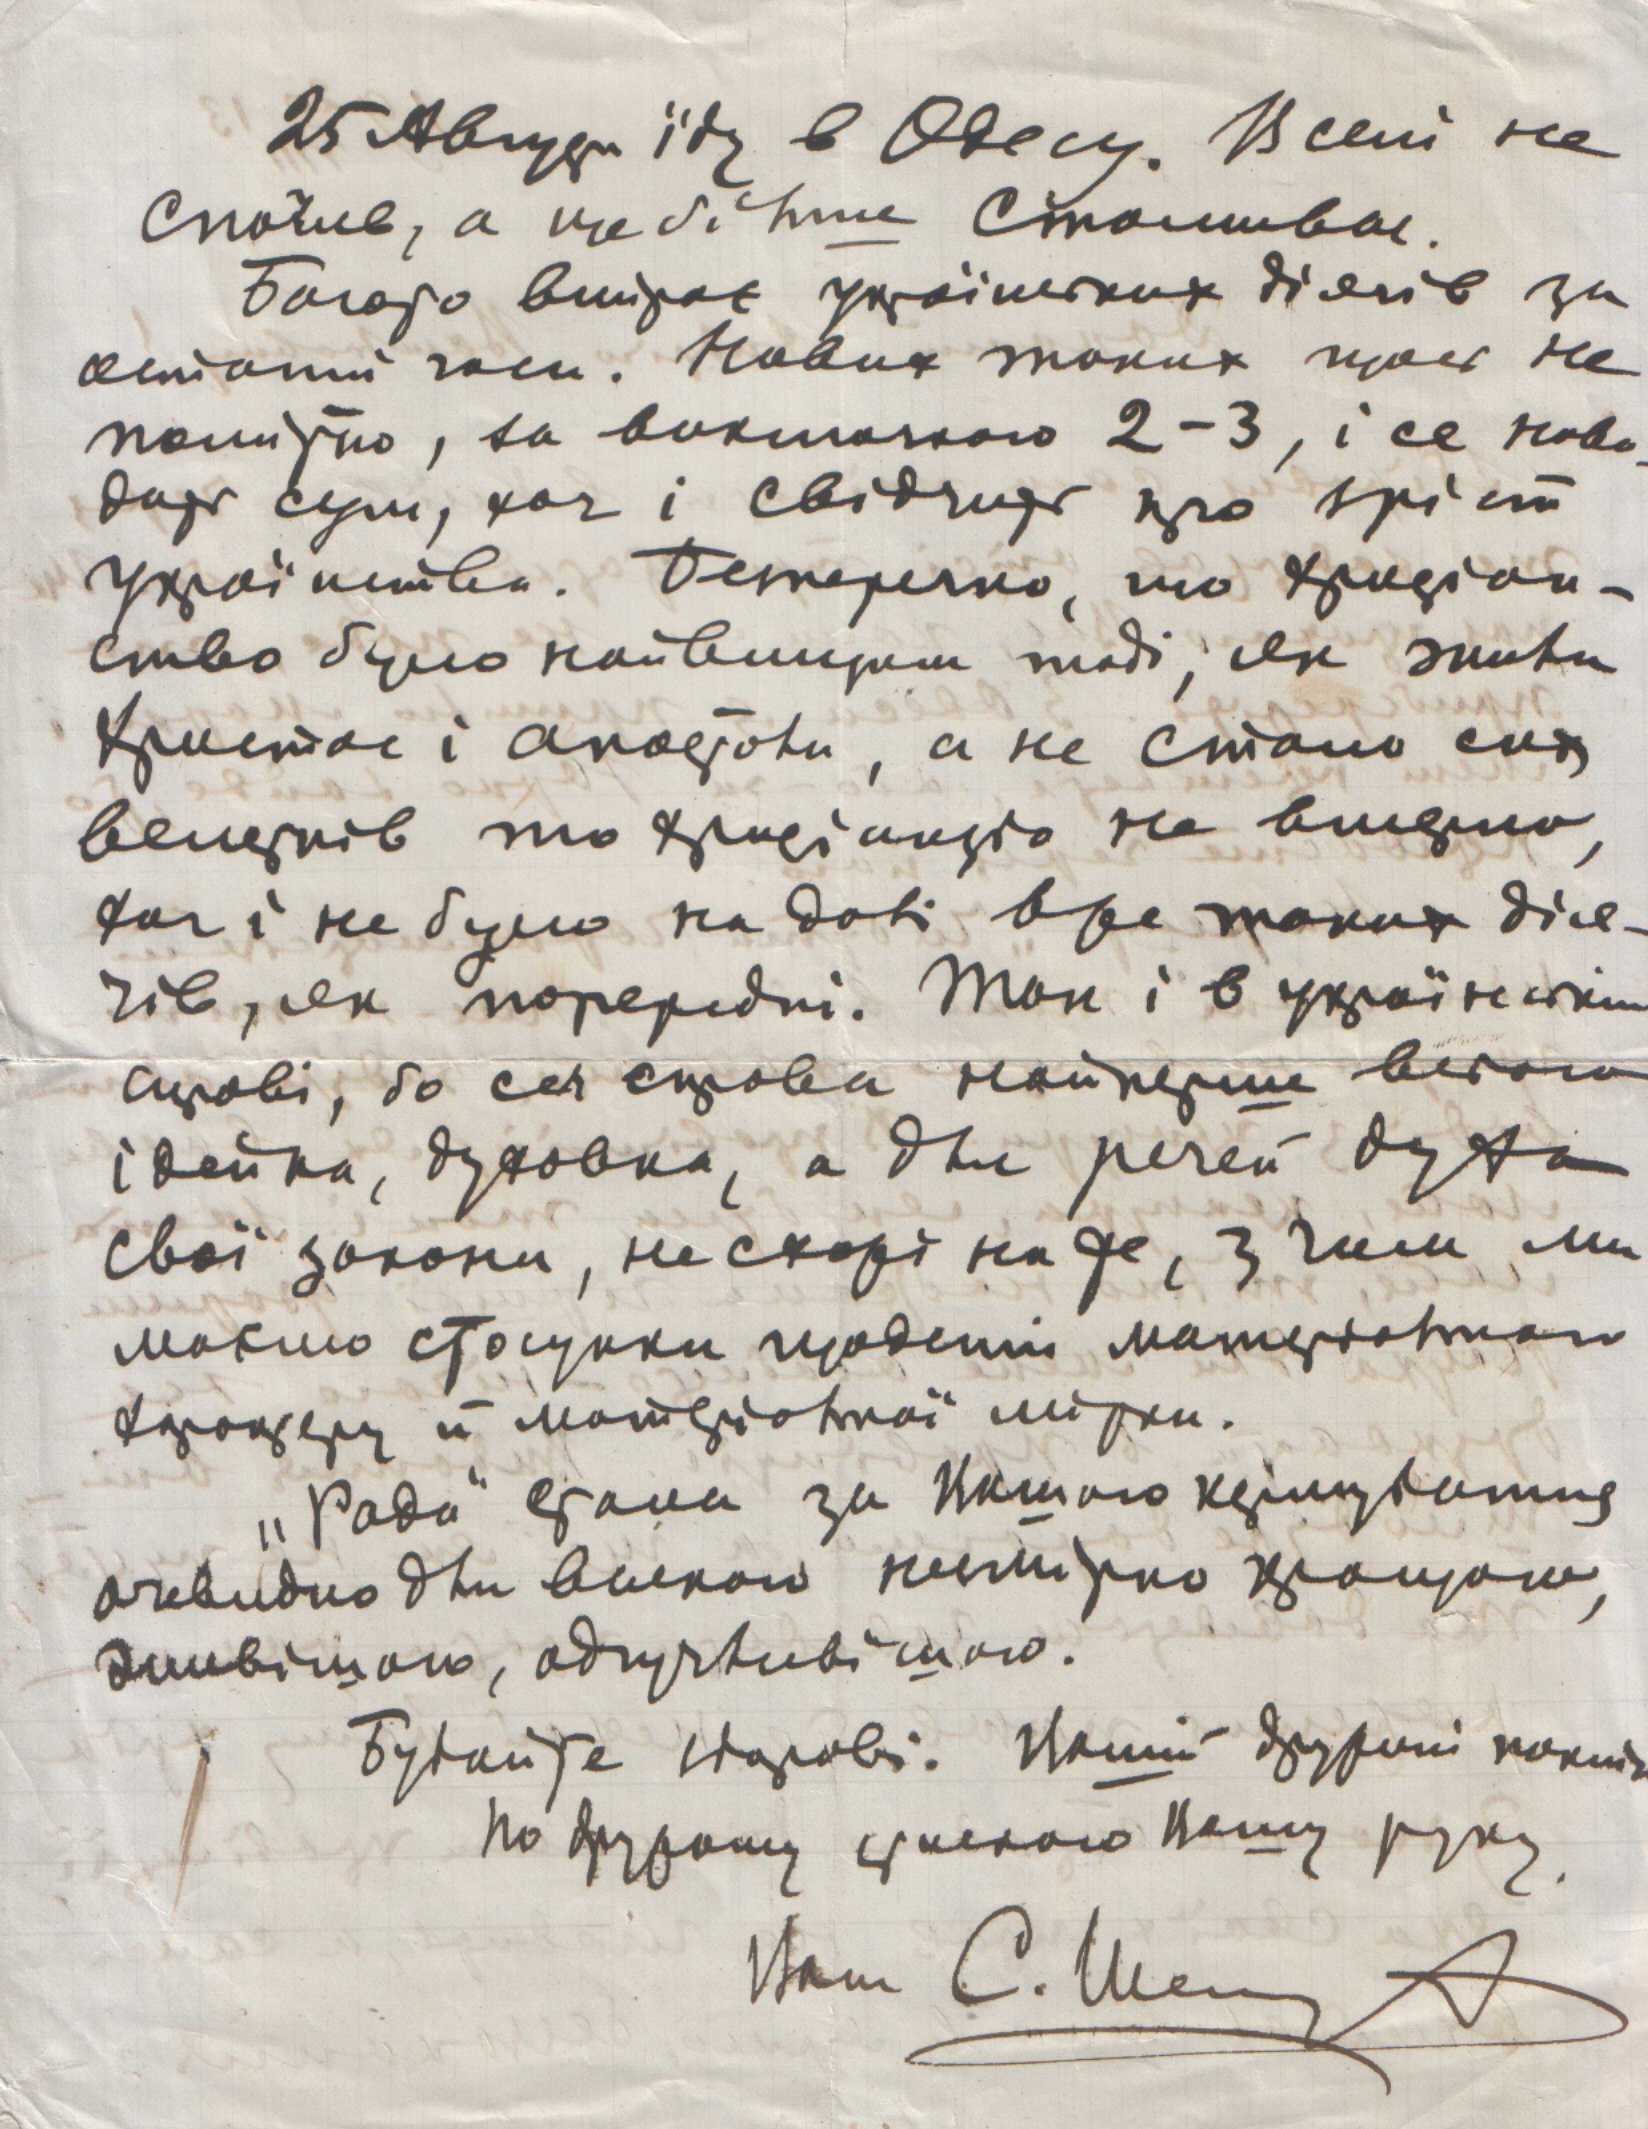 25 Августа їду в Одесу. В селі не
спочив, а ще більше стомивсь.
Багато вмірає українських діячів за
останні часи. Нових таких щось не
помітно, за виключкою 2-3, і се наво-
дить сум, хоч і свідчить про зріст
українства. Безперечно, що христіан-
ство було найвищим тоді, як жили
Христос і апостоли, а не стало сих
велетнів то христіанство не вмерло,
хоч і не було на далі вже таких дія-
чів, як попередні. Так і в українській
справі, бо ся справа найперше всього
ідейна, духовна, а для речей духа
свої закони, не схожі на те, з чим ми
маємо стосунки щоденні матеріального
характеру й матеріальної мірки.
„Рада“ стала за Вашого
очевидно для всякого незмірно кращою,
живішою, одчутливішою.
Бувайте здорові. Вашій дружині
По дружньому стискаю Вашу руку.
Ваш С. Шелухин